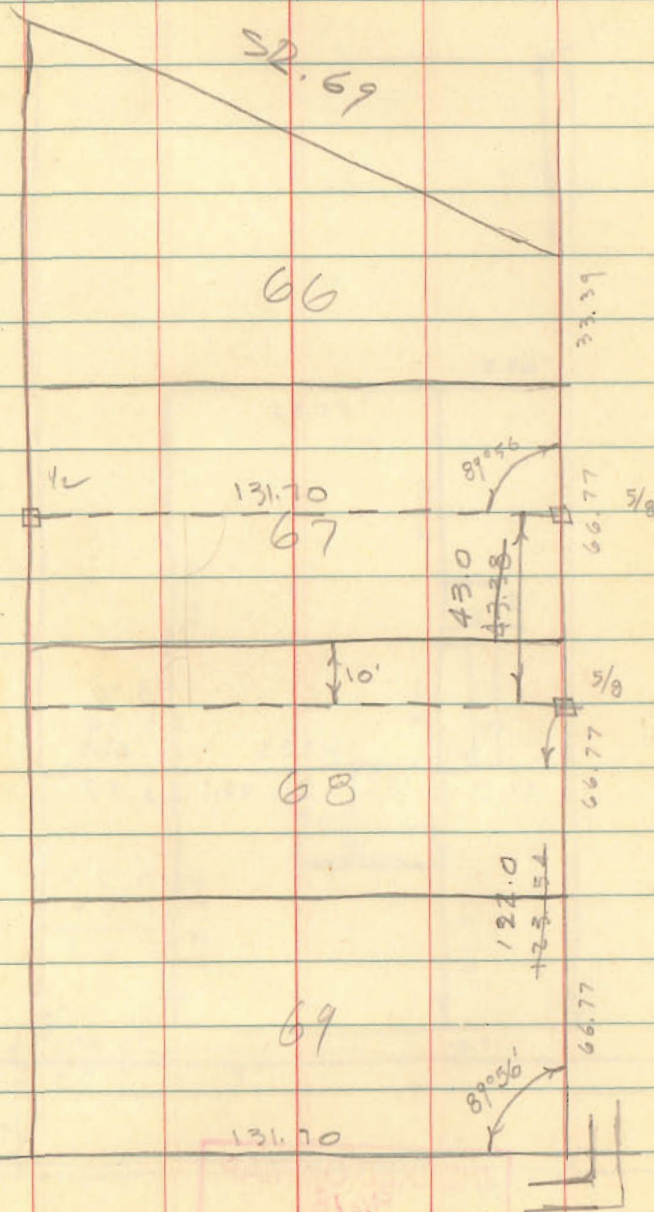 52.69
66
33.39
89°56
1/2
131.70
66.77
5/8
67
43.0
43.38
10'
5/8
66.77
68
122.0
123.54
69
66.77
89°56'
131.70